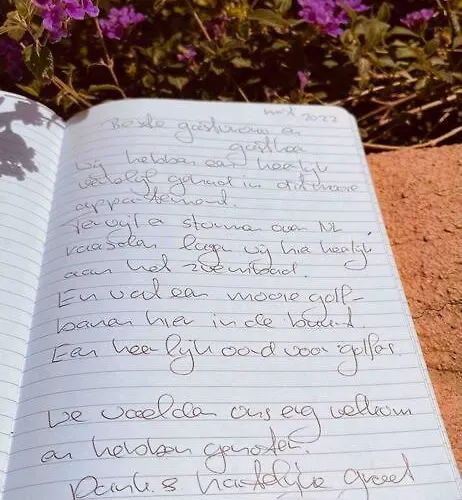 2022
Beste gastvrouw en
gastheer
Wij hebben een heerlijk
verblijf gehad in dit mooie
appartement.
Terwijl er stormen over NL
raasden lagen wij hier heerlijk
aan het zwembad.
En wat een mooie golf-
banen hier in de buurt.
Een heerlijk oord voor golfers.
We voelden ons erg welkom
en hebben genoten.
Dank & hartelijke groet